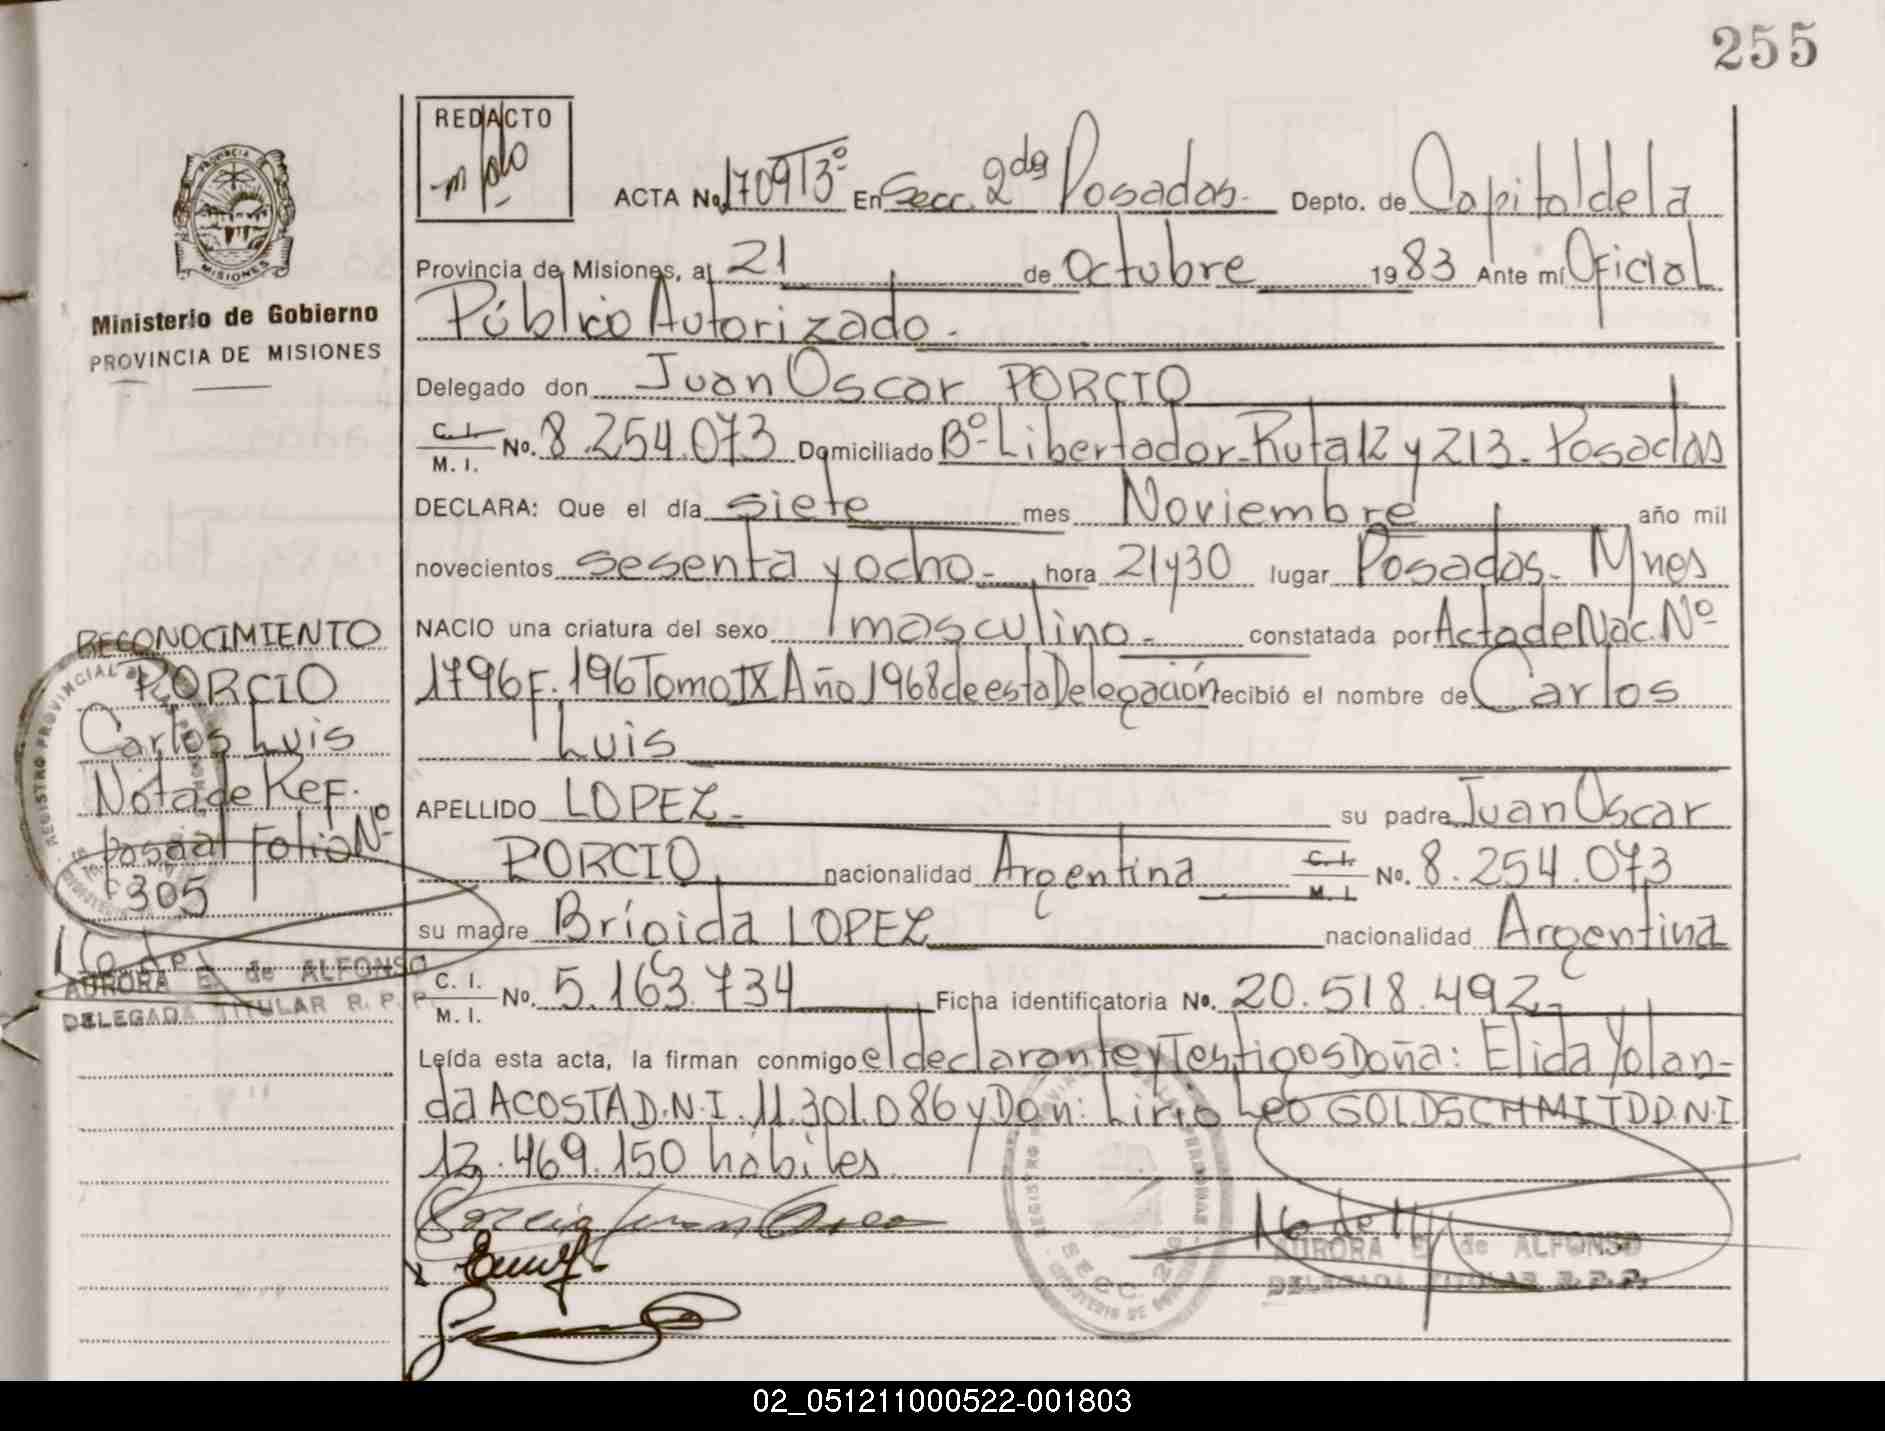 255
REDACTO
ACTA No. 1709 T3º En Secc. 2da Posadas.- Depto. de Capital de la
Provincia de Misiones, a 21 de Octubre 1983 Ante mí Oficial
Público Autorizado.-
Delegado don Juan Oscar PORCIO
C. I. M. I. No. 8.254.073 Domiciliado Bº- Libertador-Ruta 12 y 213.- Posadas
DECLARA: Que el día siete mes Noviembre año mil
novecientos sesenta y ocho.- hora 21 y 30 lugar Posadas.- Mnes
NACIO una criatura del sexo masculino.- constatada por Acta de Nac. Nº
1796 F. 196 Tomo IX Año 1968 de esta Delegación recibió el nombre de Carlos
Luis
APELLIDO LOPEZ.- su padre Juan Oscar
PORCIO nacionalidad Argentina C. I. M. I. No. 8.254.073
su madre Brígida LOPEZ nacionalidad Argentina
C. I. M. I. No. 5.163.734 Ficha identificatoria No. 20.518.492.-
Leída esta acta, la firman conmigo el declarante y Testigos Doña: Elida Yolan-
da ACOSTA D.N.I. 11.301.086 y Don: Lirio Leo GOLDSCHMITD D.N.I
12.469.150 hábiles
Porcio Juan Oscar
REGISTRO PROVINCIAL DE LAS PERSONAS
SECC. 2da
MINISTERIO DE GOBIERNO
AURORA E. de ALFONSO
DELEGADA TITULAR R. P. P.
PROVINCIA DE
MISIONES
Ministerio de Gobierno
PROVINCIA DE MISIONES
RECONOCIMIENTO
PORCIO
Carlos Luis
Nota de Ref.
Folio Nº
305
REGISTRO PROVINCIAL DE LAS PERSONAS
AURORA E. de ALFONSO
DELEGADA TITULAR R. P. P.
02_051211000522-001803